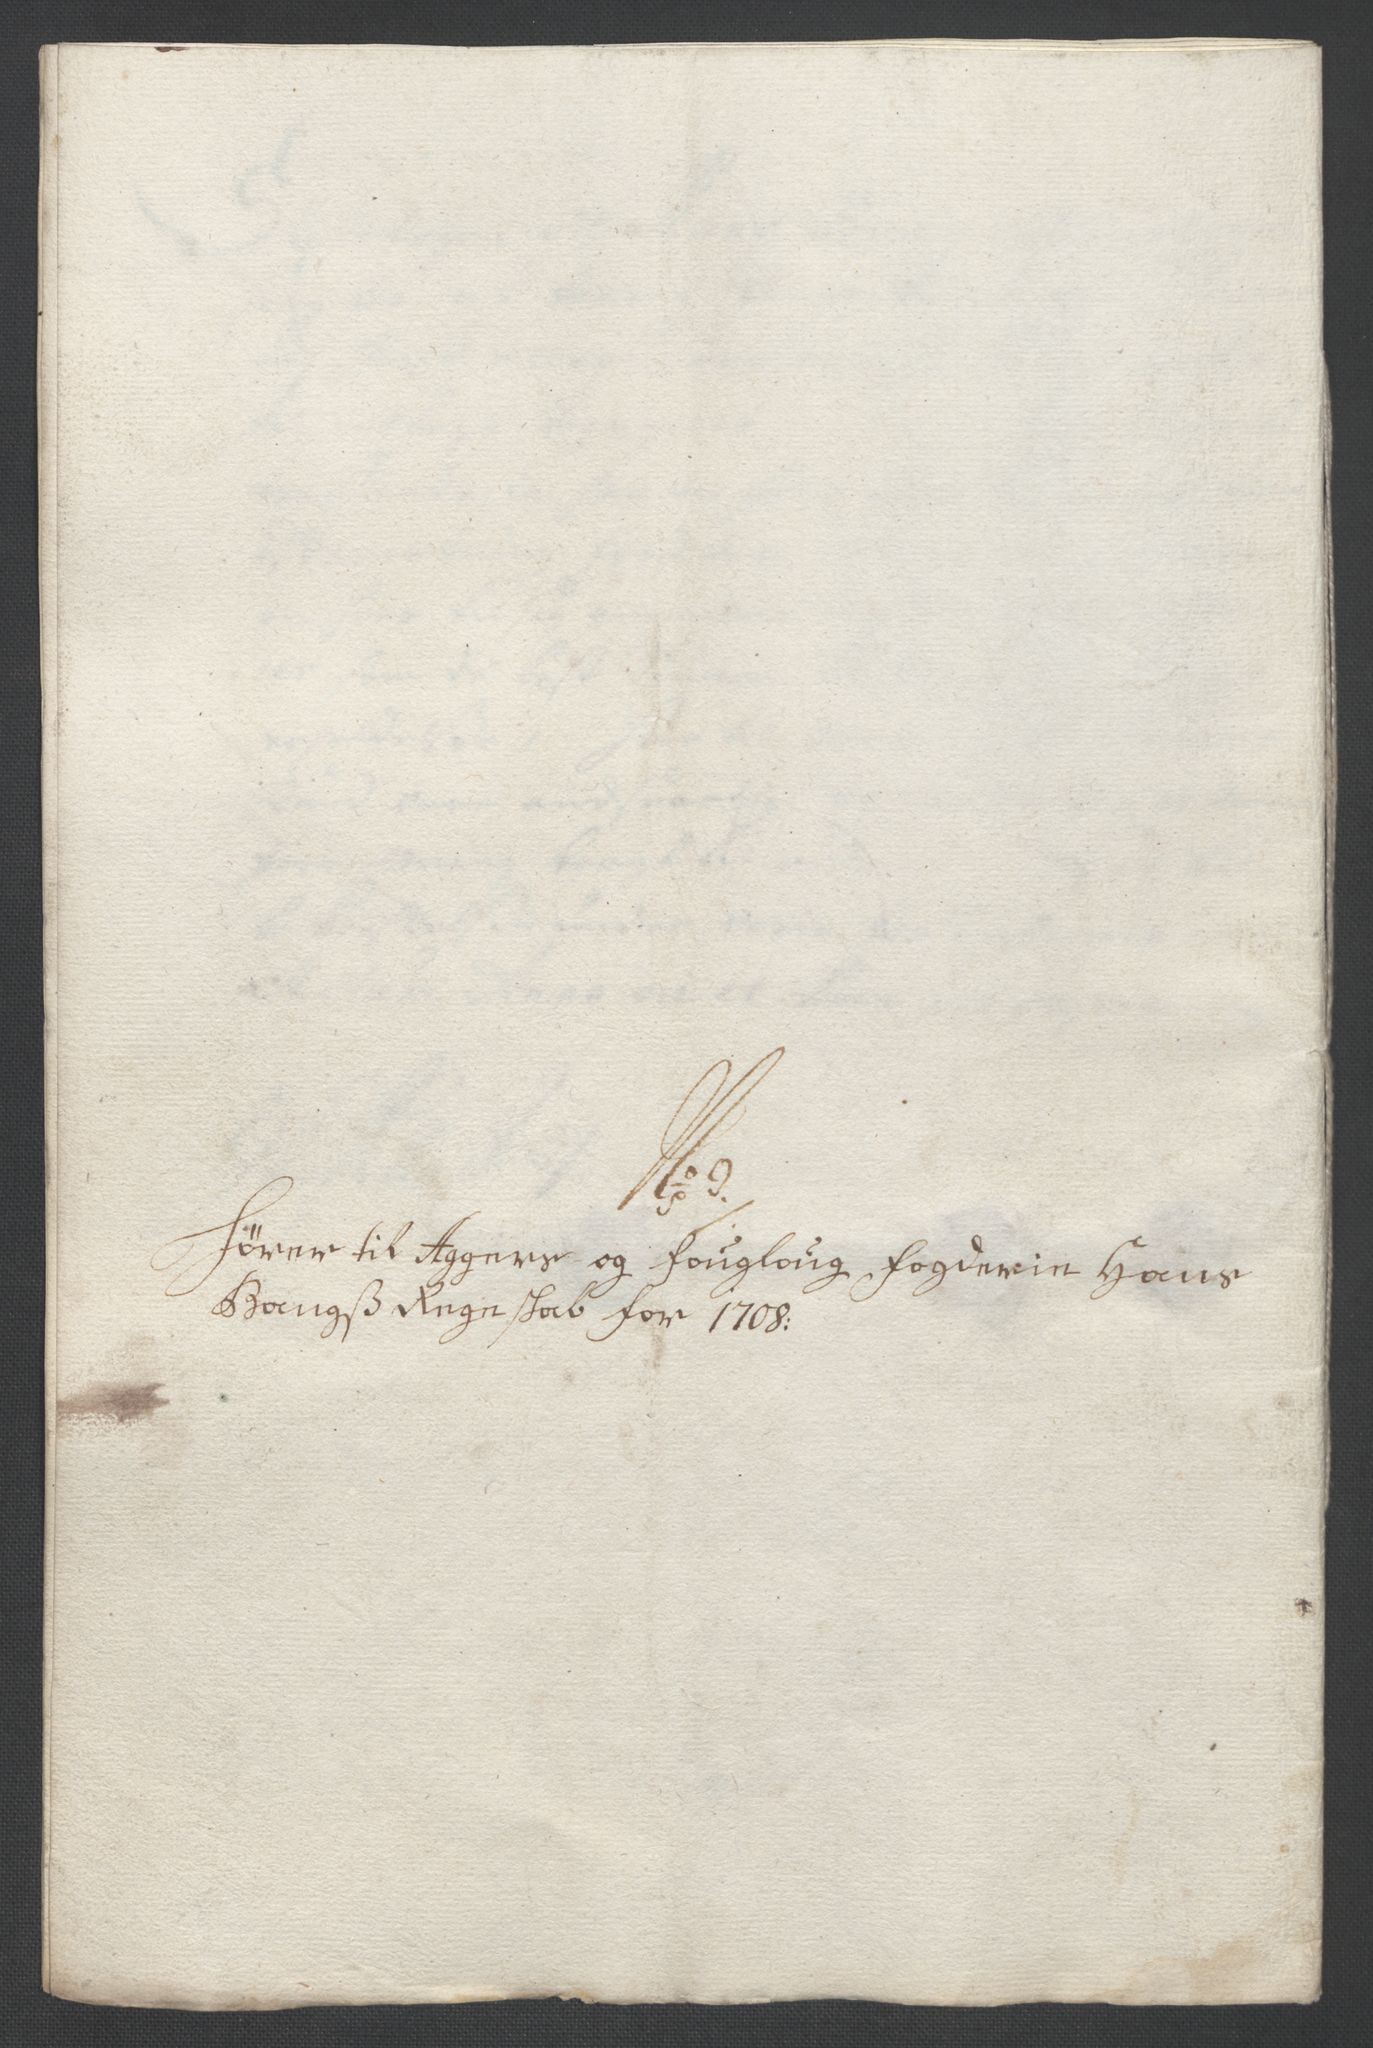 No 9.
Hörer til Aggers og fougloug fogderie Hans
Bangsß Regeskab for 1708: